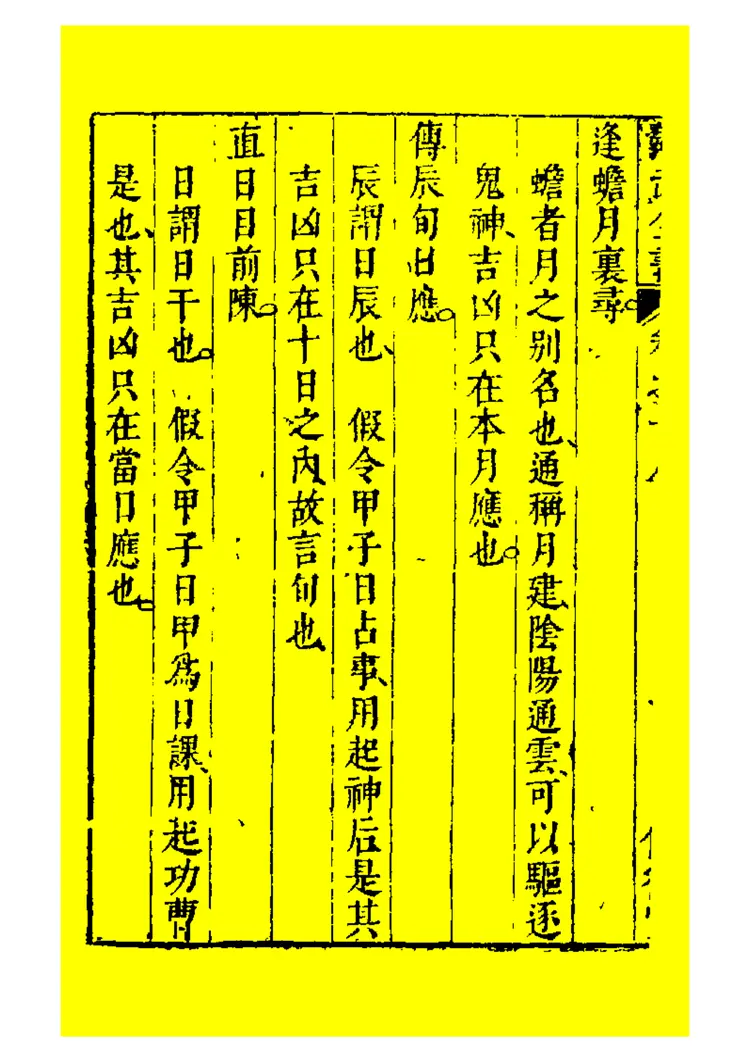 逢蟾月裏尋。
蟾者月之别名也、通稱月建、陰陽通雲、可以驅逐
鬼神、吉凶只在本月應也。
傳辰旬日應。
辰謂日辰也、 假令甲子日占事、用起神后是其
吉凶只在十日之内、故言旬也
直日目前陳。
日謂日干也。 假令甲子日甲爲日課、用起功曹
是也、其吉凶只在當日應也。